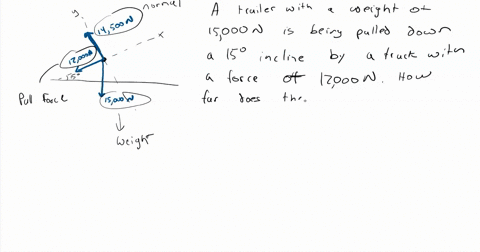 y
14,500N
normal
x
12,000N
15°
Pull Force
15,000N
Weight
A trailer with a weight of
15,000N is being pulled down
a 15° incline by a truck with
a force of 12,000N. How
far does the.